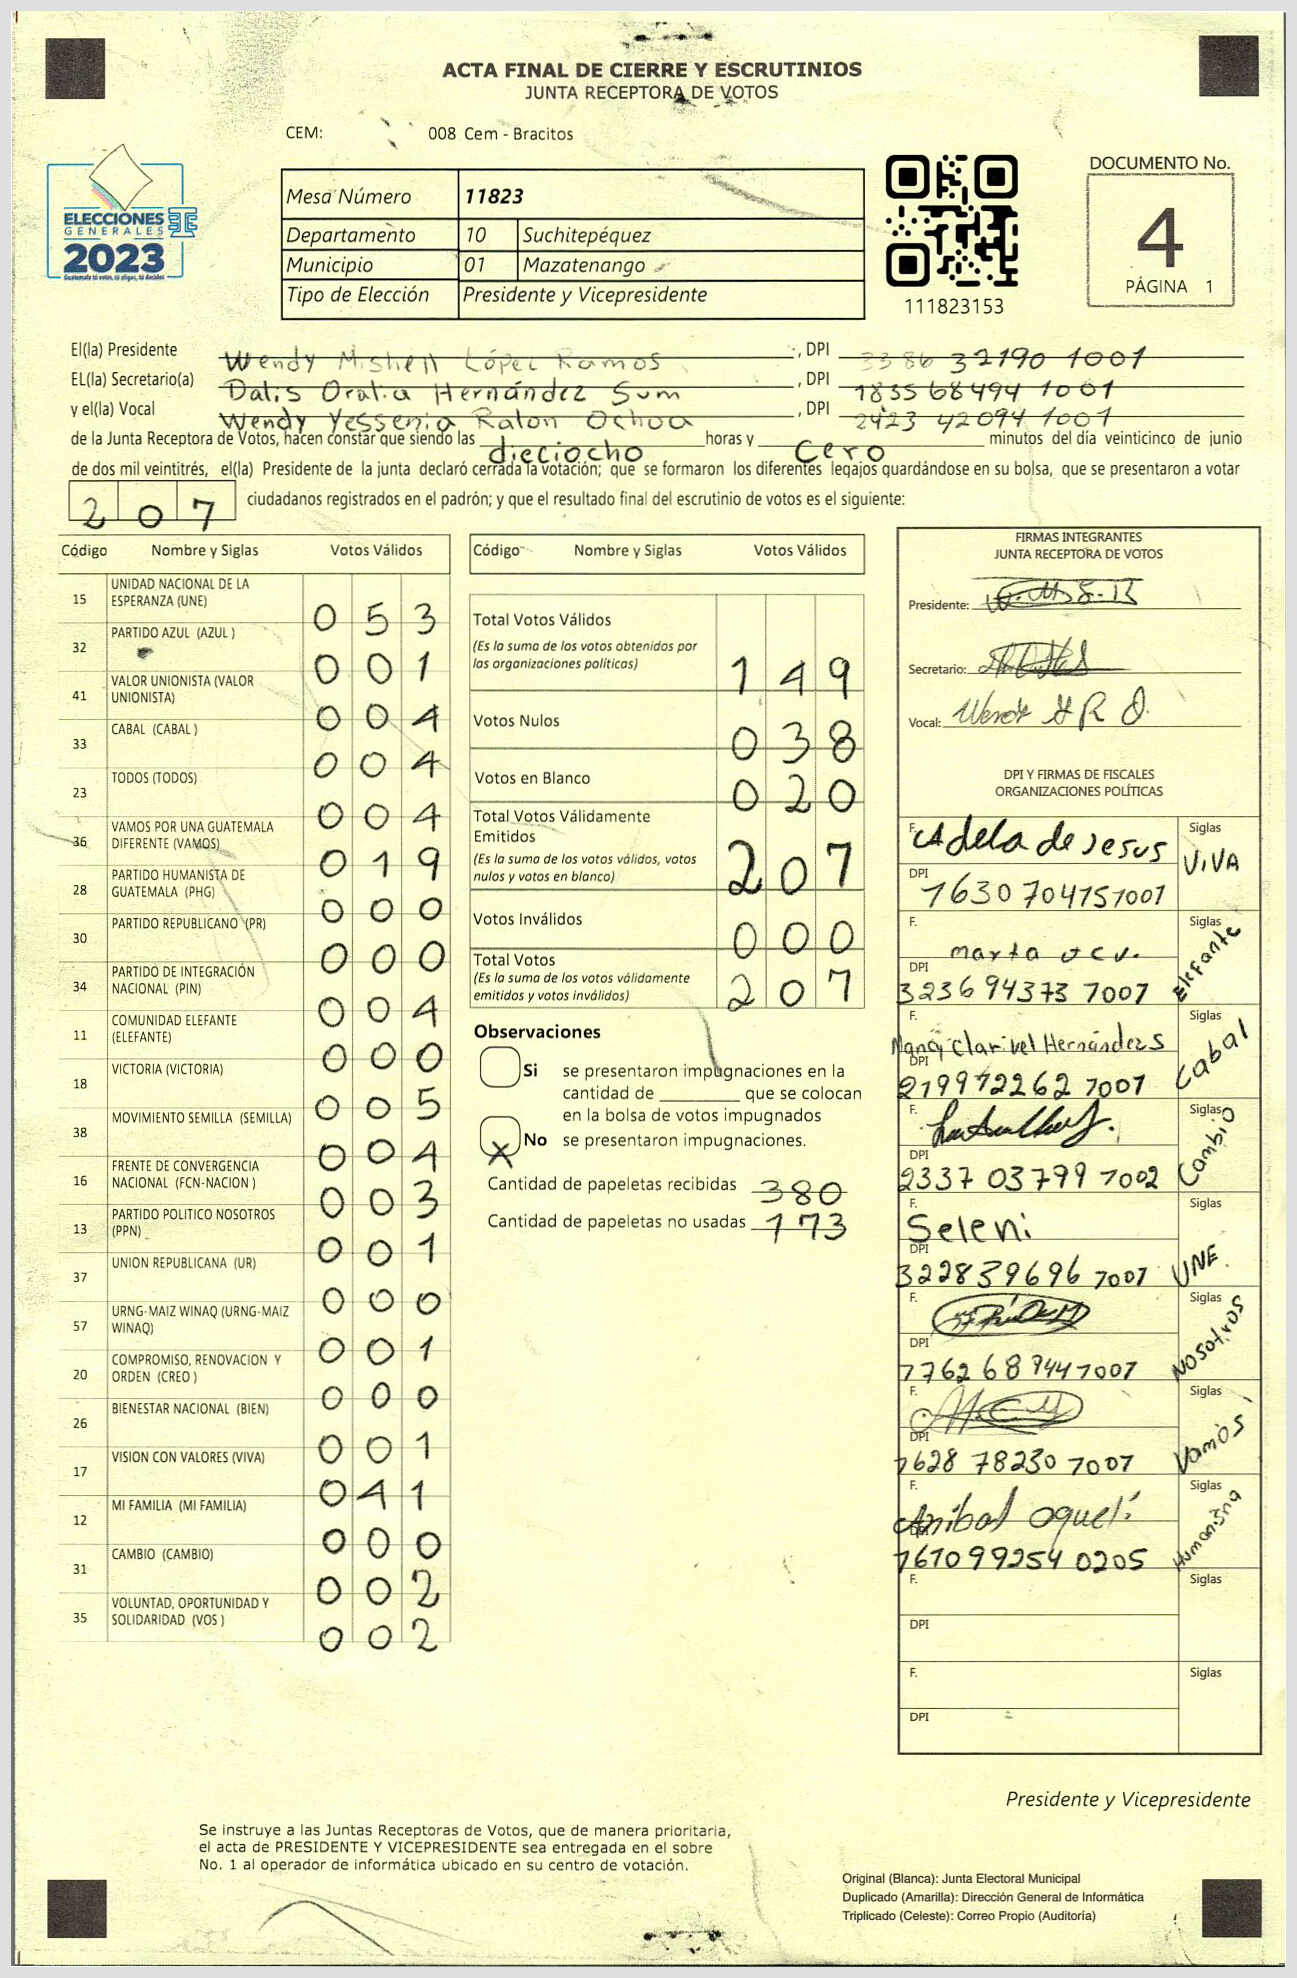 ACTA FINAL DE CIERRE Y ESCRUTINIOS
JUNTA RECEPTORA DE VOTOS
CEM: 008 Cem - Bracitos
ELECCIONES
GENERALES
2023
Guatemala tú votas, tú eliges, tú decides
Mesa Número 11823
Departamento 10 Suchitepéquez
Municipio 01 Mazatenango
Tipo de Elección Presidente y Vicepresidente
111823153
DOCUMENTO No.
4
PÁGINA 1
El(la) Presidente Wendy Mishell López Ramos, DPI 3386 32190 1001
EL(la) Secretario(a) Dalis Oralia Hernández Sum, DPI 1835 68494 1001
y el(la) Vocal Wendy Yessenia Ralon Ochoa, DPI 2423 42094 1001
de la Junta Receptora de Votos, hacen constar que siendo las dieciocho horas y cero minutos del día veinticinco de junio
de dos mil veintitrés, el(la) Presidente de la junta declaró cerrada la votación; que se formaron los diferentes legajos guardándose en su bolsa, que se presentaron a votar
207 ciudadanos registrados en el padrón; y que el resultado final del escrutinio de votos es el siguiente:
Código Nombre y Siglas Votos Válidos
15 UNIDAD NACIONAL DE LA ESPERANZA (UNE) 053
32 PARTIDO AZUL (AZUL ) 001
41 VALOR UNIONISTA (VALOR UNIONISTA) 004
33 CABAL (CABAL ) 004
23 TODOS (TODOS) 004
36 VAMOS POR UNA GUATEMALA DIFERENTE (VAMOS) 019
28 PARTIDO HUMANISTA DE GUATEMALA (PHG) 000
30 PARTIDO REPUBLICANO (PR) 000
34 PARTIDO DE INTEGRACIÓN NACIONAL (PIN) 004
11 COMUNIDAD ELEFANTE (ELEFANTE) 000
18 VICTORIA (VICTORIA) 005
38 MOVIMIENTO SEMILLA (SEMILLA) 004
16 FRENTE DE CONVERGENCIA NACIONAL (FCN-NACION ) 003
13 PARTIDO POLITICO NOSOTROS (PPN) 001
37 UNION REPUBLICANA (UR) 000
57 URNG-MAIZ WINAQ (URNG-MAIZ WINAQ) 001
20 COMPROMISO, RENOVACION Y ORDEN (CREO ) 000
26 BIENESTAR NACIONAL (BIEN) 001
17 VISION CON VALORES (VIVA) 041
12 MI FAMILIA (MI FAMILIA) 000
31 CAMBIO (CAMBIO) 002
35 VOLUNTAD, OPORTUNIDAD Y SOLIDARIDAD (VOS ) 002
Código Nombre y Siglas Votos Válidos
Total Votos Válidos
(Es la suma de los votos obtenidos por
las organizaciones políticas) 149
Votos Nulos 038
Votos en Blanco 020
Total Votos Válidamente
Emitidos
(Es la suma de los votos válidos, votos
nulos y votos en blanco) 207
Votos Inválidos 000
Total Votos
(Es la suma de los votos válidamente
emitidos y votos inválidos) 207
Observaciones
Si se presentaron impugnaciones en la
cantidad de ________ que se colocan
en la bolsa de votos impugnados
X No se presentaron impugnaciones.
Cantidad de papeletas recibidas 380
Cantidad de papeletas no usadas 173
FIRMAS INTEGRANTES
JUNTA RECEPTORA DE VOTOS
Presidente:
Secretario:
Vocal: Wendy Y R O.
DPI Y FIRMAS DE FISCALES
ORGANIZACIONES POLÍTICAS
F. Adela de Jesus Siglas VIVA
DPI 1630 70415 1001
F. marta Siglas Elefante
DPI 3236 94373 1001
F. Nancy Clarivel Hernández S Siglas Cabal
DPI 2199 72262 1001
F. Siglas Cambio
DPI 2337 03799 1002
F. Seleni Siglas UNE
DPI 3228 39696 1001
F. Siglas NOSOTROS
DPI 1762 68 944 1001
F. Siglas Vamos
DPI 1628 78230 1001
F. Anibal Oquelí Siglas Humanista
DPI 1610 99254 0205
F. Siglas
DPI
F. Siglas
DPI
Presidente y Vicepresidente
Se instruye a las Juntas Receptoras de Votos, que de manera prioritaria,
el acta de PRESIDENTE Y VICEPRESIDENTE sea entregada en el sobre
No. 1 al operador de informática ubicado en su centro de votación.
Original (Blanca): Junta Electoral Municipal
Duplicado (Amarilla): Dirección General de Informática
Triplicado (Celeste): Correo Propio (Auditoría)